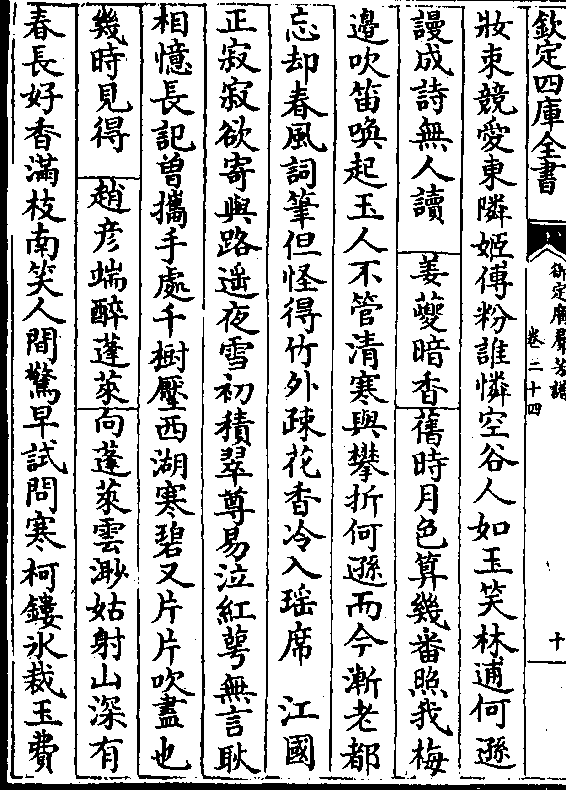 欽定四庫全書
御定廣羣芳譜
卷二十四
十
妝束競愛東隣姬傅粉誰憐空谷人如玉笑林逋何遜
謾成詩無人讀　姜夔暗香舊時月色算幾番照我梅
邉吹笛喚起玉人不管清寒與攀折何遜而今漸老都
忘却春風詞筆但怪得竹外疎花香冷入瑶席　江國
正寂寂欲寄與路遥夜雪初積翠尊易泣紅萼無言耿
相憶長記曾攜手處千樹壓西湖寒碧又片片吹盡也
幾時見得　趙彦端醉蓬萊向蓬萊雲渺姑射山深有
春長好香滿枝南笑人間驚早試問寒柯鏤冰裁玉費